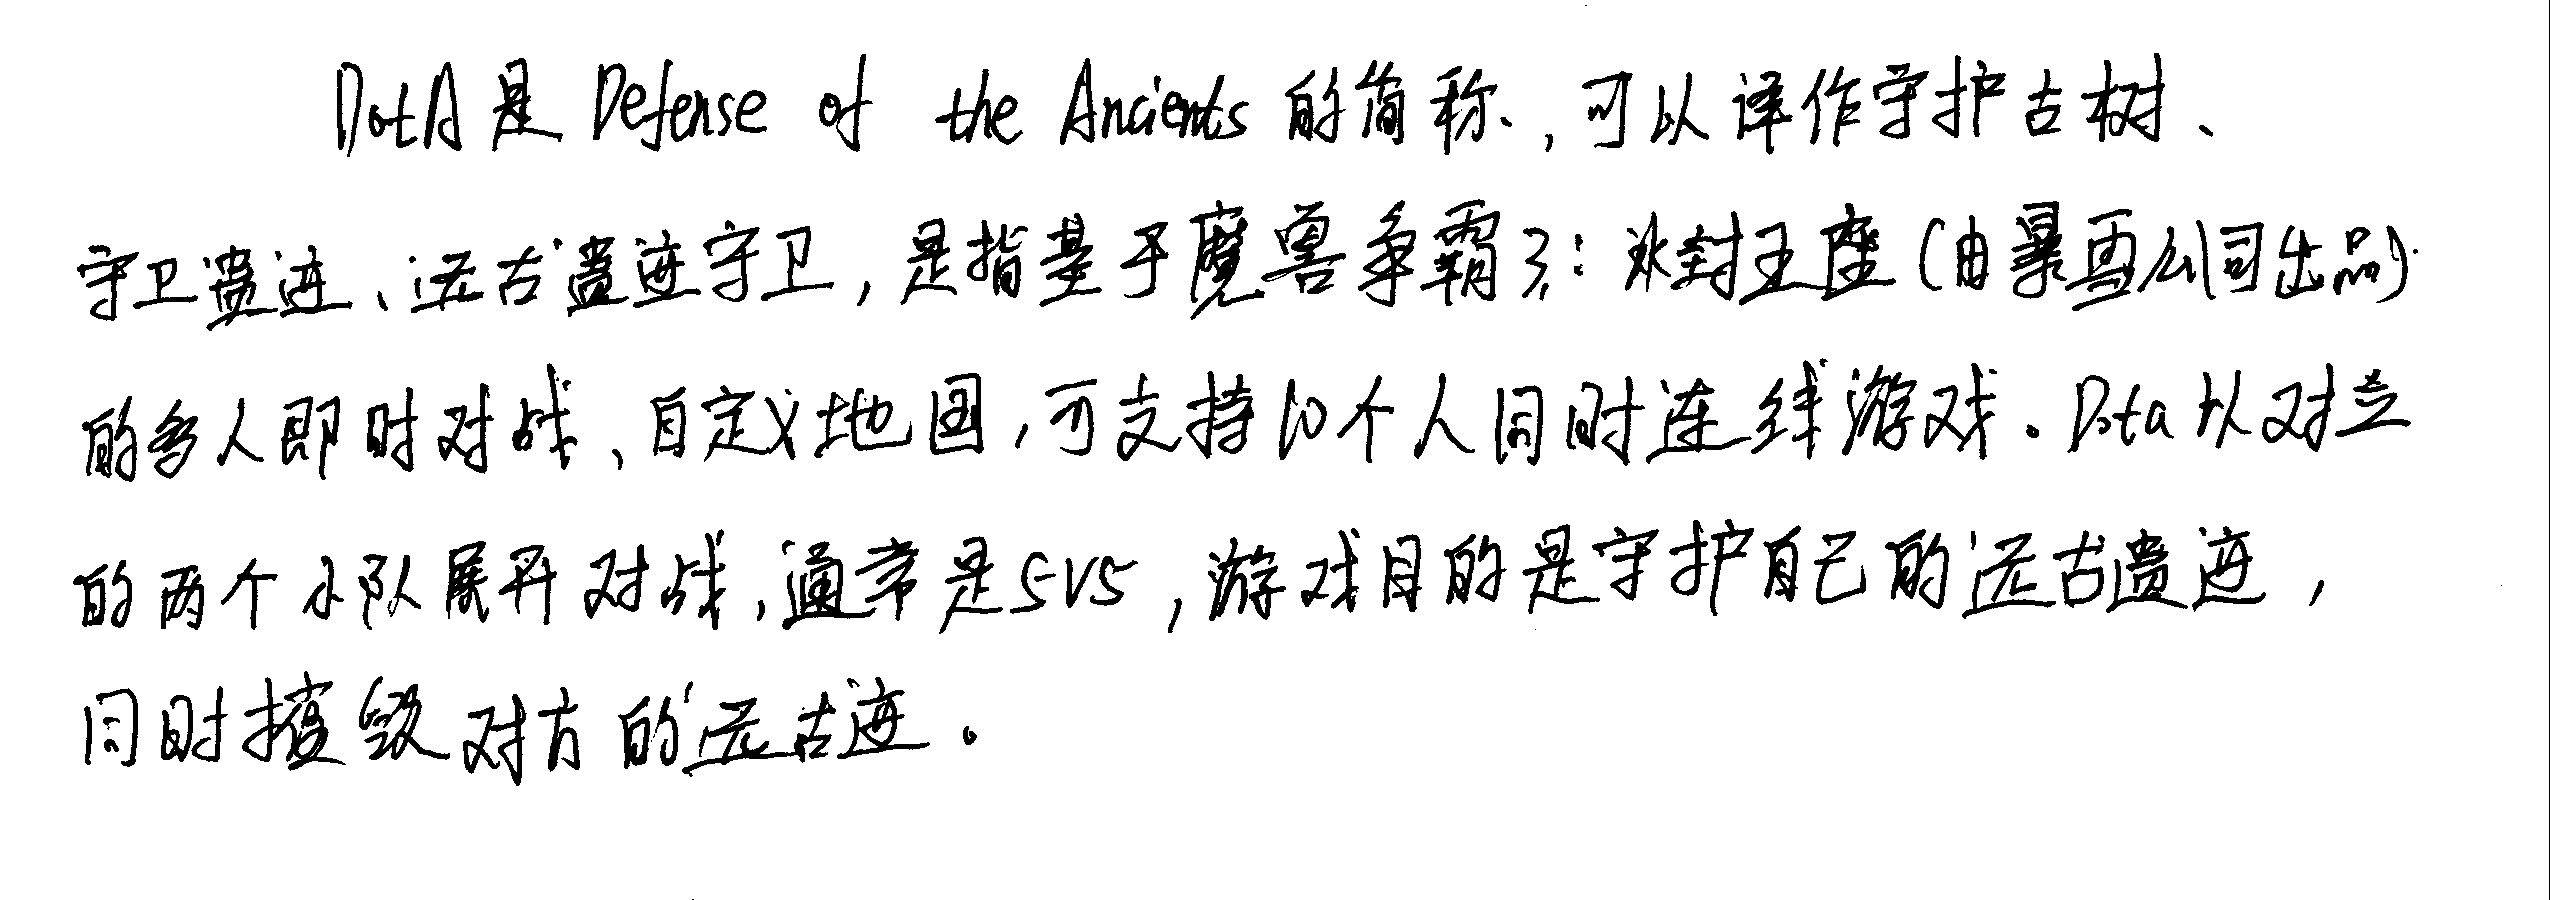 DotA是 Defense of the Ancients 的简称,可以译作守护古树、
守卫遗迹、远古遗迹守卫,是指基于魔兽争霸3:冰封王座(由暴雪公司出品)
的多人即时对战、自定义地图,可支持10个人同时连线游戏。Dota以对立
的两个小队展开对战,通常是5V5,游戏目的是守护自己的远古遗迹,
同时摧毁对方的远古迹。